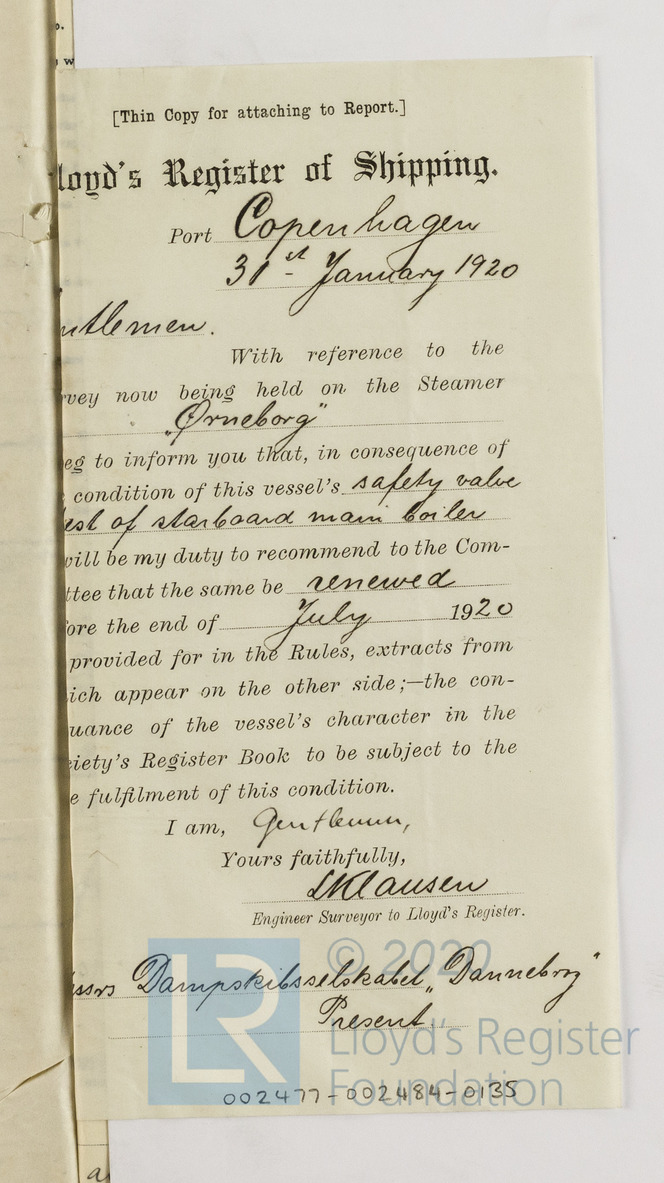 [Thin Copy for attaching to Report.]
loyd's Register of Shipping.
Port Copenhagen
31st January 1920
ntlemen.
With reference to the
rvey now being held on the Steamer
"Ørneborg"
eg to inform you that, in consequence of
condition of this vessel's safety valve
est of starboard main boiler
vill be my duty to recommend to the Com-
ttee that the same be renewed
ore the end of July 1920
provided for in the Rules, extracts from
ich appear on the other side;—the con-
uance of the vessel's character in the
iety's Register Book to be subject to the
e fulfilment of this condition.
I am, Gentlemen,
Yours faithfully,
Klausen
Engineer Surveyor to Lloyd's Register.
ssrs Dampskibsselskabet „Danneborg"
Present.
© 2020
LR
Lloyd's Register
Foundation
002477-002484-0135